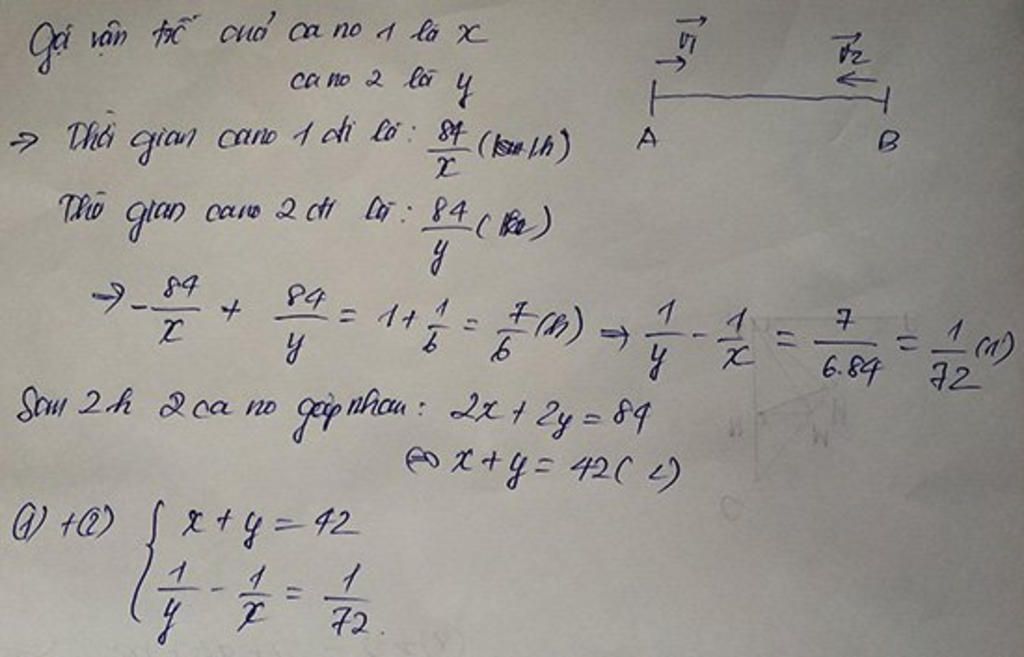 Gọi vận tốc của ca no 1 là x
ca no 2 là y
→ Thời gian cano 1 đi là: 84/x (h)
Thờ gian cano 2 đi là: 84/y ( )
→ -84/x + 84/y = 1 + 1/6 = 7/6 (h) → 1/y - 1/x = 7/6.84 = 1/72 (1)
Sau 2h 2 ca no gặp nhau: 2x + 2y = 84
⇔ x + y = 42 (2)
(1) + (2) { x + y = 42
1/y - 1/x = 1/72.
v1
v2
A B